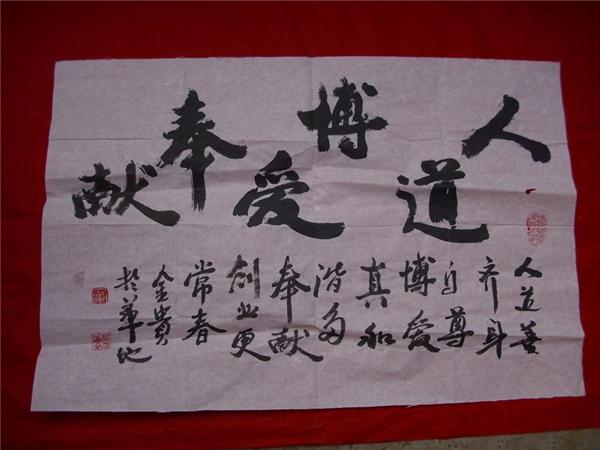 人道博爱奉献
人道善
齐身
自尊
博爱
真和
谐多
奉献
创业更
常春
金貴
於華地